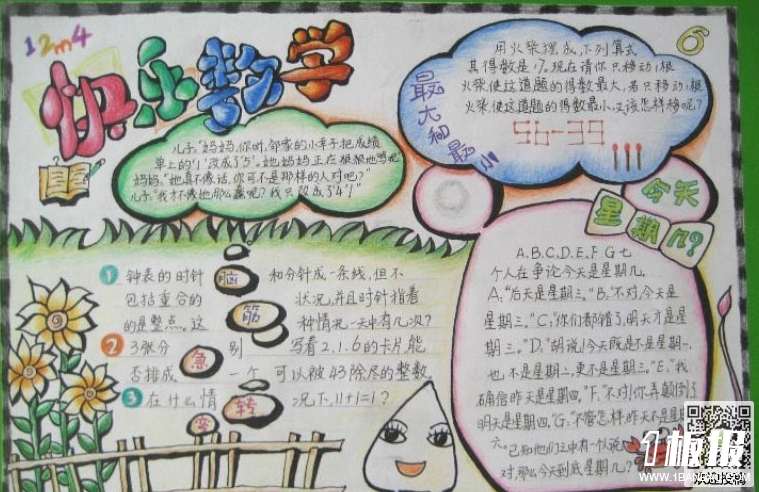 12m4
快乐数学
儿子:"妈妈,你听,邻家的小辛子把成绩
单上的'1'改成了'5',她妈妈正在狠狠地骂呢
妈妈:"她真不像话,你可不是那样的人对吧?"
儿子:"我才不像她那么蠢呢?我只改成了'4'!"
6
最大和最小
用火柴摆成下列算式
其得数是17,现在请你只移动1根
火柴,使这道题的得数最大,若只移动1根
火柴,使这道题的得数最小,又该怎样移呢?
56-39
今天
星期几?
A、B、C、D、E、F、G七
个人在争论今天是星期几,
A:"后天是星期三。"B:"不对,今天是
星期三。"C:"你们都错了,明天才是星
期三。"D:"胡说!今天既是不是星期一,
也不是星期二,更不是星期三。"E:"我
确信昨天是星期四。"F:"不对!你弄颠倒了
明天是星期四。"G:"不管怎样,昨天不是星期
六。"已知他们之中有一个人说
对,那么今天到底星期几?
脑筋急转变
1 钟表的时针和分针成一条线,但不
包括重合的状况,并且时针指着
的是整点。这种情况一天中有几次?
2 3张分别写着2、1、6的卡片,能
否排成一个可以被43除尽的整数
3 在什么情况下,1+1=1?
板报
WWW.1BANBAO.COM